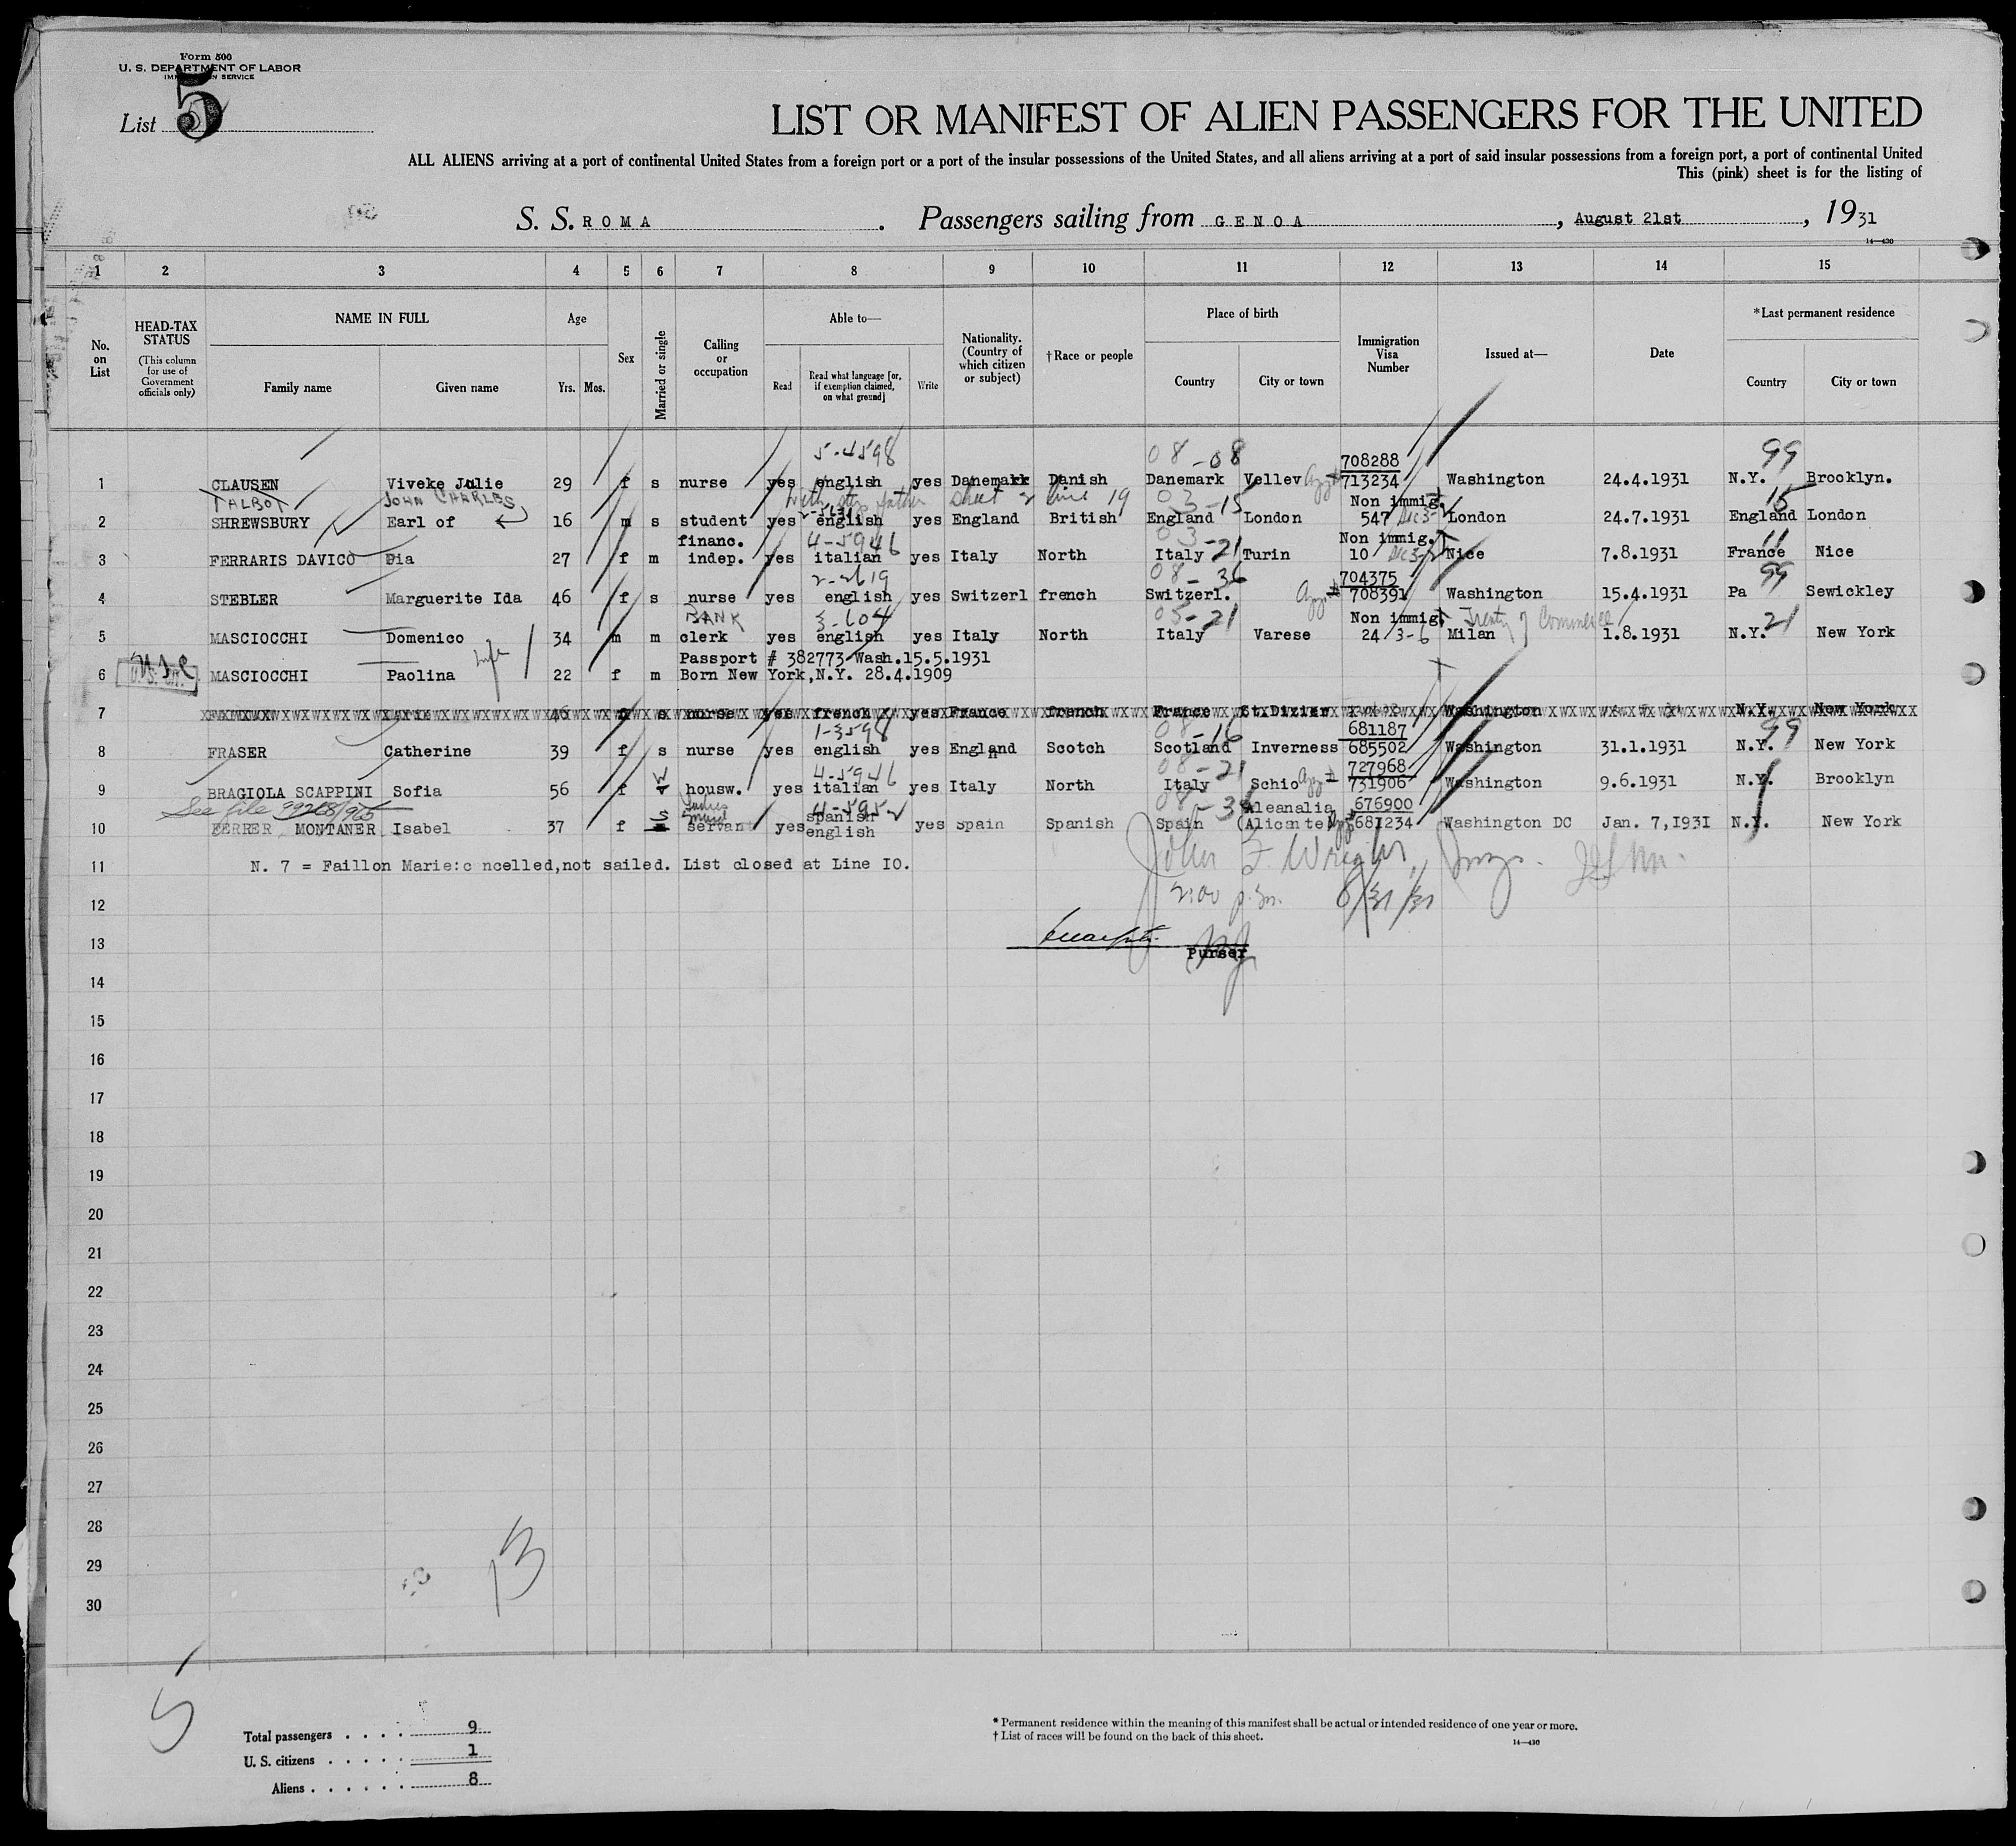 Form 500
U. S. DEPARTMENT OF LABOR
IMMIGRATION SERVICE
List 5
LIST OR MANIFEST OF ALIEN PASSENGERS FOR THE UNITED
ALL ALIENS arriving at a port of continental United States from a foreign port or a port of the insular possessions of the United States, and all aliens arriving at a port of said insular possessions from a foreign port, a port of continental United
This (pink) sheet is for the listing of
S. S. ROMA . Passengers sailing from GENOA , August 21st , 1931
14—430
1 2 3 4 5 6 7 8 9 10 11 12 13 14 15
No. on List
HEAD-TAX STATUS (This column for use of Government officials only)
NAME IN FULL Family name Given name
Age Yrs. Mos.
Sex
Married or single
Calling or occupation
Able to— Read Read what language [or, if exemption claimed, on what ground] Write
Nationality. (Country of which citizen or subject)
†Race or people
Place of birth Country City or town
Immigration Visa Number
Issued at—
Date
*Last permanent residence Country City or town
5-4598 08-08 708288 99
1 CLAUSEN Viveke Julie 29 f s nurse yes english yes Danemark Danish Danemark Vellev 713234 Washington 24.4.1931 N.Y. Brooklyn.
TALBOT JOHN CHARLES with step father sheet 2 line 19 03-15 Non immig. 15
2 SHREWSBURY Earl of 16 m s student yes english yes England British England London 547 London 24.7.1931 England London
financ. 4-5946 03-21 Non immig. 11
3 FERRARIS DAVICO Pia 27 f m indep. yes italian yes Italy North Italy Turin 10 Nice 7.8.1931 France Nice
2-2619 08-36 704375 99
4 STEBLER Marguerite Ida 46 f s nurse yes english yes Switzerl french Switzerl. 708391 Washington 15.4.1931 Pa Sewickley
BANK 3-604 03-21 Non immig. Treaty of Commerce 21
5 MASCIOCCHI Domenico 34 m m clerk yes english yes Italy North Italy Varese 24 3-6 Milan 1.8.1931 N.Y. New York
Passport # 382773-Wash.15.5.1931
6 MASCIOCCHI Paolina wife 22 f m Born New York,N.Y. 28.4.1909
7 46 s nurse yes french yes France french France St.Dizier Washington N.Y. New York
1-3598 08-16 681187 99
8 FRASER Catherine 39 f s nurse yes english yes England Scotch Scotland Inverness 685502 Washington 31.1.1931 N.Y. New York
W 4-5946 08-21 727968
9 BRAGIOLA SCAPPINI Sofia 56 f housw. yes italian yes Italy North Italy Schio 731906 Washington 9.6.1931 N.Y. Brooklyn
See file 99268/965 S Ladies maid 4-595 spanish Aleanalia 676900
10 FERRER MONTANER Isabel 37 f servant yes english yes Spain Spanish Spain (Alicante) 681234 Washington DC Jan. 7,1931 N.Y. New York
11 N. 7 = Faillon Marie:c ncelled,not sailed. List closed at Line 10.
John F. Wright,
12 2:00 p.m. 8/31/31
13
Purser
14
15
16
17
18
19
20
21
22
23
24
25
26
27
28
29
30
13
5
Total passengers . . . . 9
U. S. citizens . . . . . 1
Aliens . . . . . . 8
* Permanent residence within the meaning of this manifest shall be actual or intended residence of one year or more.
† List of races will be found on the back of this sheet.
14—430